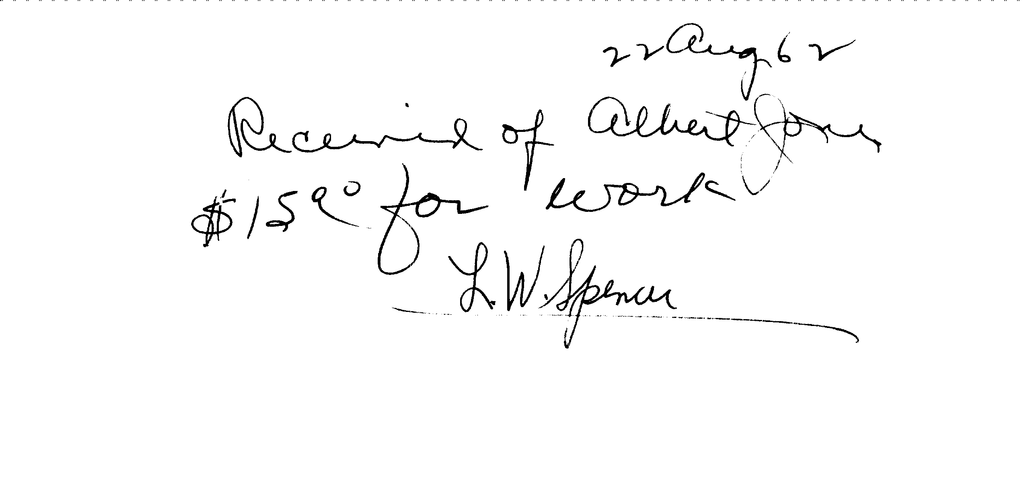 22 Aug 62
Received of Albert Jones
for work
L.W. Spencer